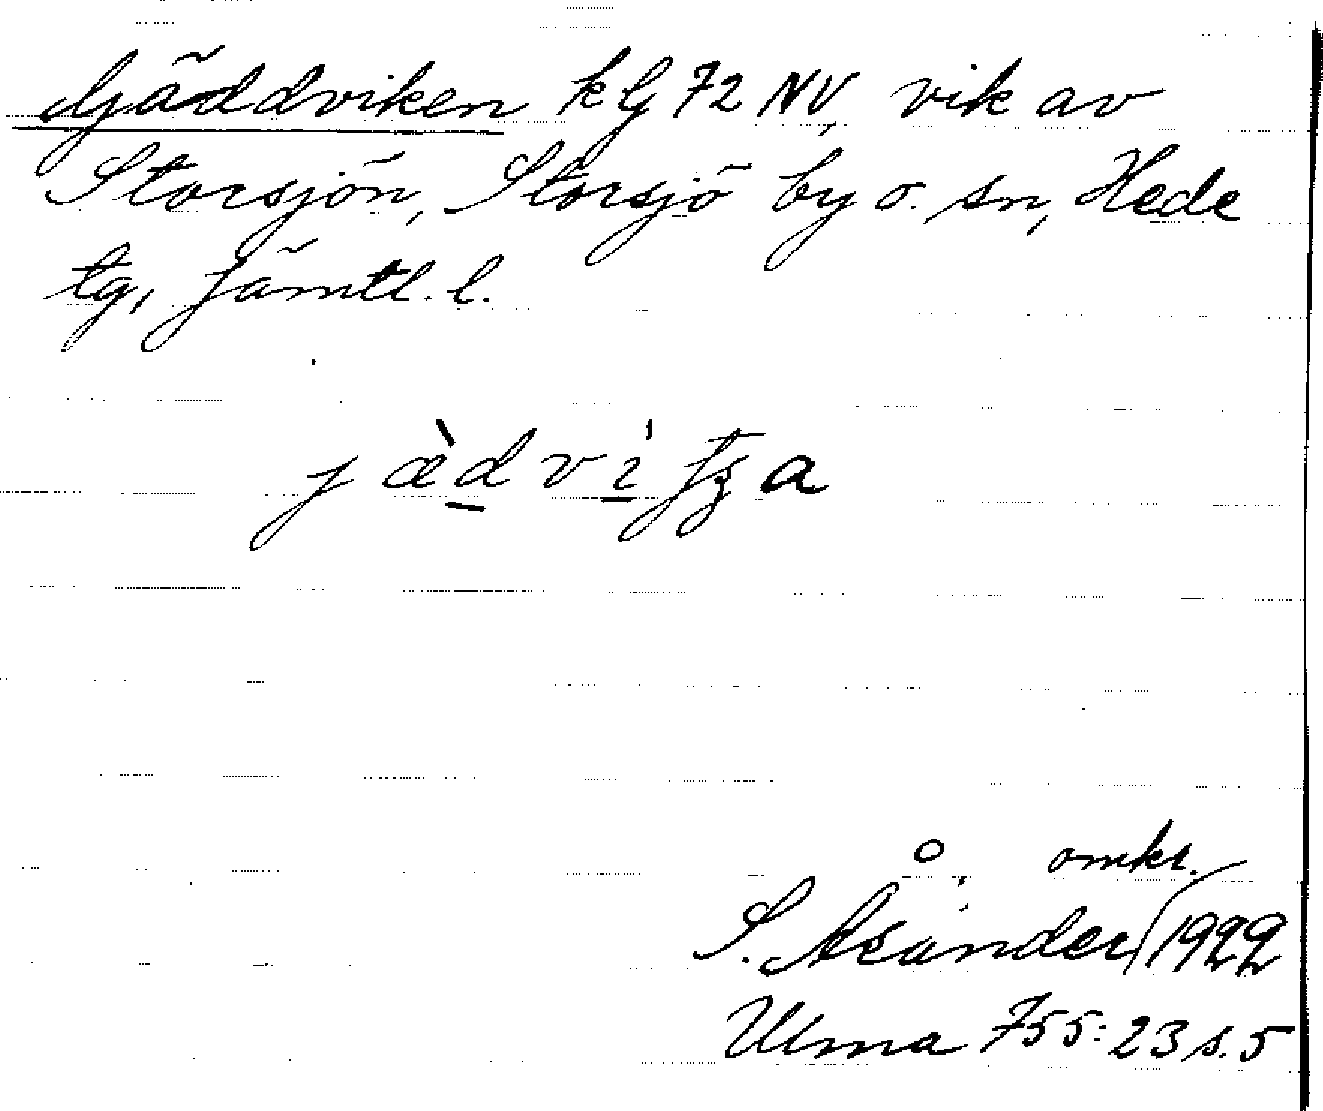 Gäddviken kG 72 NV, vik av
Storsjön, Storsjö by o. sn, Hede
tg, Jämtl. l.
omkr.
S. Åsander 1922
Ulma 755:23 s. 5